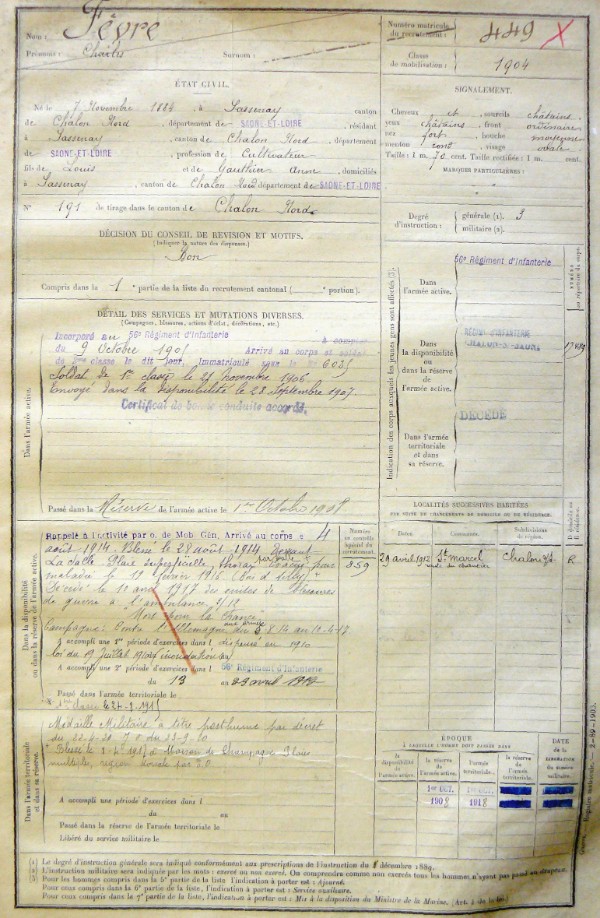 Nom : Fèvre
Prénoms : Charles Surnom :
Numéro matricule
du recrutement : 449
Classe
de mobilisation : 1904
ÉTAT CIVIL.
Né le 7 Novembre 1884 à Sassenay canton
de Chalon Nord, département de SAONE-ET-LOIRE, résidant
à Sassenay, canton de Chalon Nord, département
de SAONE-ET-LOIRE, profession de Cultivateur
fils de Louis et de Gauthier Anne, domiciliés
à Sassenay, canton de Chalon Nord département de SAONE-ET-LOIRE
N° 191 de tirage dans le canton de Chalon Nord.
SIGNALEMENT.
Cheveux et sourcils châtains
yeux châtains, front ordinaire
nez fort, bouche moyenne
menton rond, visage ovale
Taille : 1 m. 70 cent. Taille rectifiée : 1 m. cent.
MARQUES PARTICULIÈRES :
Degré
d'instruction : générale (1). 3
militaire (2).
DÉCISION DU CONSEIL DE REVISION ET MOTIFS.
(Indiquer la nature des dispenses.)
Bon
Compris dans la 1 e partie de la liste du recrutement cantonal ( portion).
DÉTAIL DES SERVICES ET MUTATIONS DIVERSES.
(Campagnes, blessures, actions d'éclat, décorations, etc.)
Dans l'armée active.
Incorporé au 56e Régiment d'Infanterie à compter
du 9 Octobre 1905 Arrivé au corps et soldat
de 2ème classe le dit jour. Immatriculé sous le N°
Soldat de 1e classe le 21 Novembre 1906.
Envoyé dans la disponibilité le 28 Septembre 1907.
Certificat de bonne conduite accordé.
Passé dans la Réserve de l'armée active le 1er Octobre 1908
Indication des corps auxquels les jeunes gens sont affectés (3).
Dans
l'armée active.
56e Régiment d'Infanterie
Dans
la disponibilité
ou dans la réserve
de l'armée active.
RÉGIM. D'INFANTERIE
CHALON-S-SAONE
Dans l'armée
territoriale
et dans
sa réserve.
DÉCÉDÉ
LOCALITÉS SUCCESSIVES HABITÉES
Dates. Communes. Subdivisions
de région.
29 avril 1912 St Marcel Chalon s/S R
Dans la disponibilité
ou dans la réserve de l'armée active.
Rappelé à l'activité par o. de Mob. Gén. Arrivé au corps le 4
août 1914. Blessé le 28 août 1914 devant
Numéro
au contrôle spécial
du recrutement.
859
Décédé le 11 avril 1917 des suites de blessures
de guerre à l'ambulance 9/18
Mort pour la France
Campagne : Contre l'Allemagne du
A accompli une 1re période d'exercices dans l
loi du 19 Juillet 1910 inondation
A accompli une 2e période d'exercices dans l 56e Régiment d'Infanterie
du 13 au 29 avril 1912
Passé dans l'armée territoriale le
Dans l'armée territoriale
et dans sa réserve.
Médaille Militaire à titre posthume par décret
du 22-6-20 J.O. du 22-9-20
A accompli une période d'exercices dans l
du au
Passé dans la réserve de l'armée territoriale le
Libéré du service militaire le
ÉPOQUE
À LAQUELLE L'HOMME DOIT PASSER DANS
la disponibilité
de l'armée active.
la réserve
de l'armée
active.
l'armée
territoriale.
la réserve
de l'armée
territoriale.
DATE
de la
LIBÉRATION
du service
militaire.
1er OCT. 1er OCT.
1908 1918
(1) Le degré d'instruction générale sera indiqué conformément aux prescriptions de l'instruction du 8 décembre 1889.
(2) L'instruction militaire sera indiquée par les mots : exercé ou non exercé. On comprendra comme non exercés tous les hommes n'ayant pas passé au drapeau.
Pour les hommes compris dans la 5e partie de la liste l'indication à porter est : Ajourné.
Pour ceux compris dans la 6e partie de la liste, l'indication à porter est : Service auxiliaire.
Pour ceux compris dans la 7e partie de la liste, l'indication à porter est : Mis à la disposition du Ministre de la Marine. (Art. 4 de la loi.)